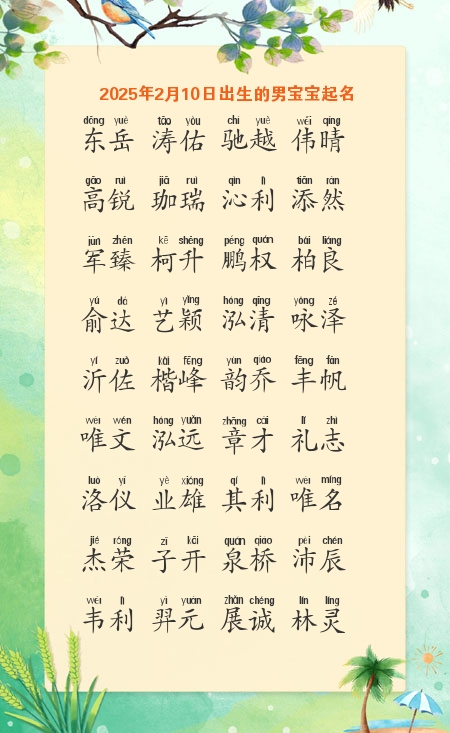 2025年2月10日出生的男宝宝起名
dōng yuè tāo yòu chí yuè wěi qíng
东岳 涛佑 驰越 伟晴
gāo ruì jiā ruì qìn lì tiān rán
高锐 珈瑞 沁利 添然
jūn zhēn kē shēng péng quán bǎi liáng
军臻 柯升 鹏权 柏良
yú dá yì yǐng hóng qīng yǒng zé
俞达 艺颖 泓清 咏泽
yí zuǒ kǎi fēng yùn qiáo fēng fān
沂佐 楷峰 韵乔 丰帆
wéi wén hóng yuǎn zhāng cái lǐ zhì
唯文 泓远 章才 礼志
luò yí yè xióng qí lì wéi míng
洛仪 业雄 其利 唯名
jié róng zǐ kāi quán qiáo pèi chén
杰荣 子开 泉桥 沛辰
wéi lì yì yuán zhǎn chéng lín líng
韦利 羿元 展诚 林灵